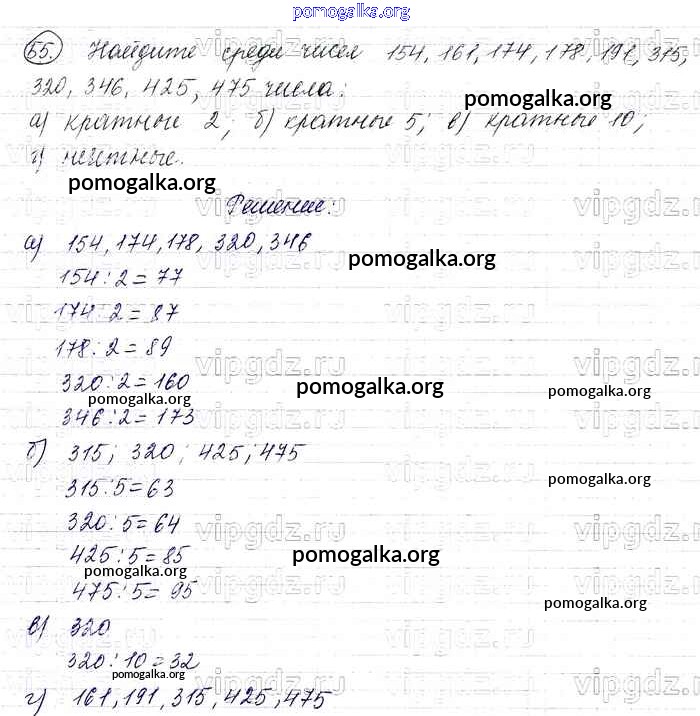 pomogalka.org
55. Найдите среди чисел 154, 161, 174, 178, 191, 315,
320, 346, 425, 475 числа:
pomogalka.org
а) кратные 2; б) кратные 5; в) кратные 10;
г) нечётные.
pomogalka.org
vipgdz.ru
Решение:
vipgdz.ru
а) 154, 174, 178, 320, 346
pomogalka.org
154:2=77
174:2=87
vipgdz.ru
178:2=89
vipgdz.ru
320:2=160
pomogalka.org
pomogalka.org
pomogalka.org
346:2=173
б) 315; 320; 425; 475
315:5=63
pomogalka.org
320:5=64
vipgdz.ru
vipgdz.ru
425:5=85
pomogalka.org
pomogalka.org
475:5=95
pomogalka.org
в) 320
320:10=32
pomogalka.org
vipgdz.ru
vipgdz.ru
г) 161, 191, 315, 425, 475